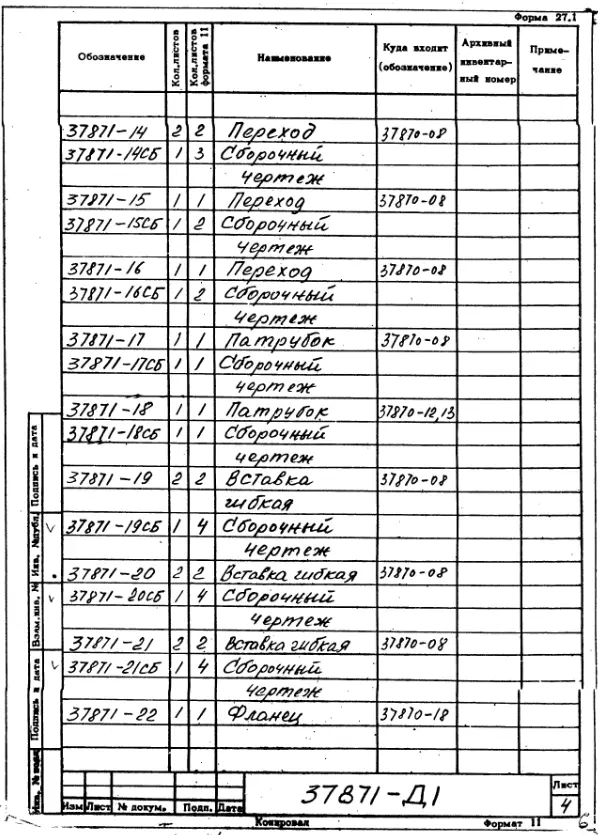 Форма 27.1
Обозначение Кол.листов Кол.листов формата 11 Наименование Куда входит (обозначение) Архивный инвентарный номер Примечание
37871-14 2 2 Переход 37870-08
37871-14СБ 1 3 Сборочный
чертеж
37871-15 1 1 Переход 37870-08
37871-15СБ 1 2 Сборочный
чертеж
37871-16 1 1 Переход 37870-08
37871-16СБ 1 2 Сборочный
чертеж
37871-17 1 1 Патрубок 37870-08
37871-17СБ 1 1 Сборочный
чертеж
37871-18 1 1 Патрубок 37870-12,13
37871-18СБ 1 1 Сборочный
чертеж
37871-19 2 2 Вставка 37870-08
гибкая
37871-19СБ 1 4 Сборочный
чертеж
37871-20 2 2 Вставка гибкая 37870-08
37871-20СБ 1 4 Сборочный
чертеж
37871-21 2 2 Вставка гибкая 37870-08
37871-21СБ 1 4 Сборочный
чертеж
37871-22 1 1 Фланец 37870-18
Подпись и дата
Инв. №дубл.
Взам.инв. №
Подпись и дата
Инв. № подл.
Изм Лист № докум. Подп. Дата
37871-Д1
Лист
4
Копировал Формат 11 6